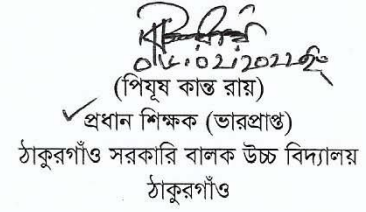 ০৮.০২.২০২২ইং
(পিযূষ কান্ত রায়)
প্রধান শিক্ষক (ভারপ্রাপ্ত)
ঠাকুরগাঁও সরকারি বালক উচ্চ বিদ্যালয়
ঠাকুরগাঁও